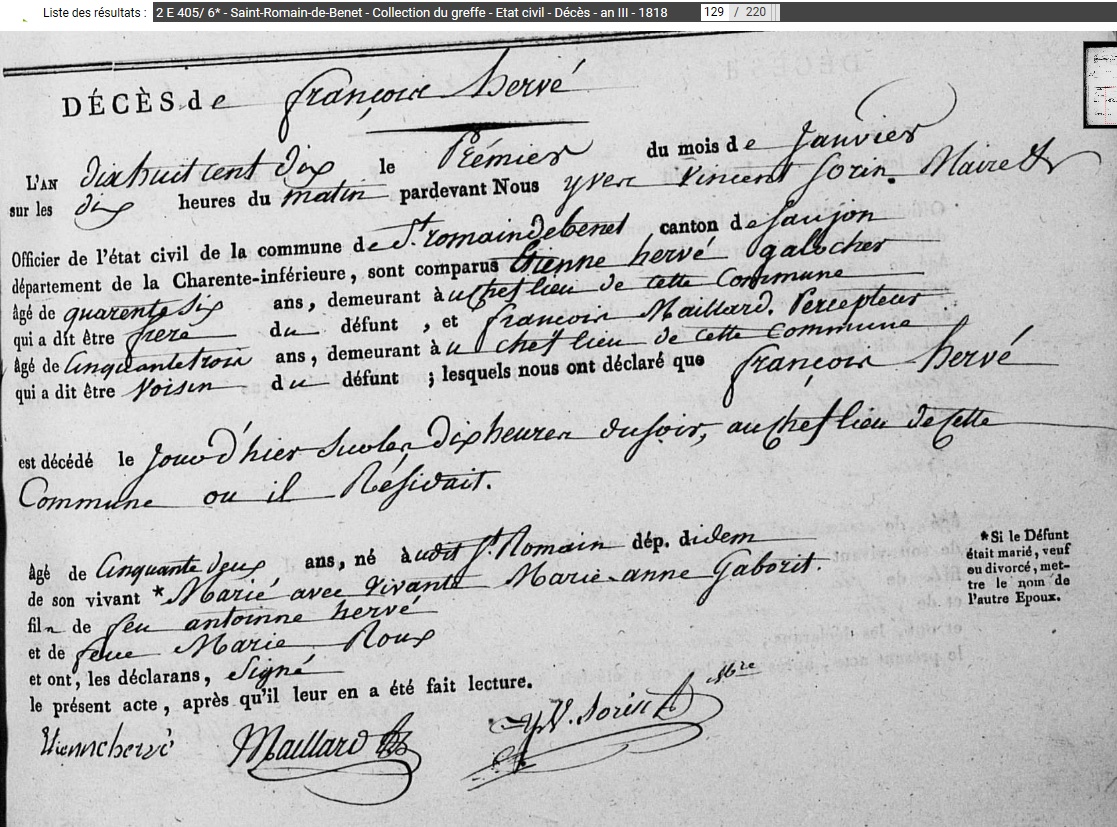 Liste des résultats : 2 E 405/ 6* - Saint-Romain-de-Benet - Collection du greffe - Etat civil - Décès - an III - 1818 129 / 220
DÉCÈS de françois hervé
L'AN dixhuit cent dix le Prémier du mois de Janvier
sur les dix heures du matin pardevant Nous yves Vincent Sorin. Maire &
Officier de l'état civil de la commune de St. romaindebenet canton de Saujon
département de la Charente-inférieure, sont comparus Etienne hervé galocher
âgé de quarente six ans, demeurant à u Chef lieu de cette Commune
qui a dit être frere du défunt, et françois Maillard. Percepteur
âgé de Cinquante trois ans, demeurant à u chef lieu de cette Commune
qui a dit être Voisin du défunt ; lesquels nous ont déclaré que françois hervé
est décédé le Jour d'hier Surles Dix heures du soir, au Chef lieu de Cette
Commune ou il Résidait.
Âgé de Cinquante deux ans, né à udit St. Romain dép. didem
de son vivant * Marié avec vivante Marie-anne Gaborit.
fils de feu antoinne hervé
et de feue Marie Roux
et ont, les déclarans, Signé
le présent acte, après qu'il leur en a été fait lecture.
*Si le Défunt
était marié, veuf
ou divorcé, met-
tre le nom de
l'autre Epoux.
Etienne hervé Maillard YV. Sorin